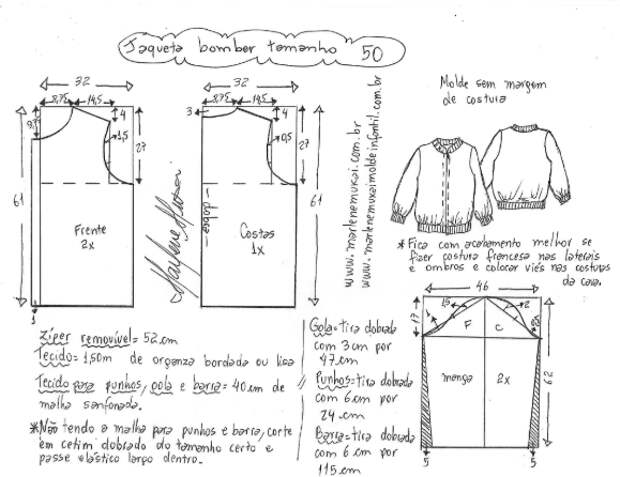 Jaqueta bomber tamanho 50
32
8,75
14,5
4
1,5
27
61
Frente
2x
1
Marlene Mukai
32
8,75
14,5
3
4
0,5
27
61
dobra
Costas
1x
www.marlenemukai.com.br
www.marlenemukaimoldeinfantil.com.br
Molde sem margem
de costura
*Fica com acabamento melhor se
fizer costura francesa nas laterais
e ombros e colocar viés nas costuras
da cava.
46
17
15
2
F
C
manga
2x
62
5
5
Zíper removível = 52 cm
Tecido = 1,50m de organza bordada ou lisa
Tecido para punhos, gola e barra = 40 cm de
malha sanfonada.
*Não tendo a malha para punhos e barra, corte
em cetim dobrado do tamanho certo e
passe elástico largo dentro.
Gola = tira dobrada
com 3 cm por
47 cm
Punhos = tira dobrada
com 6 cm por
24 cm
Barra = tira dobrada
com 6 cm por
115 cm